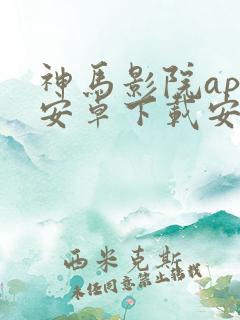 神馬影院ap
安卓下載安
西米克斯
未經同意禁止轉載